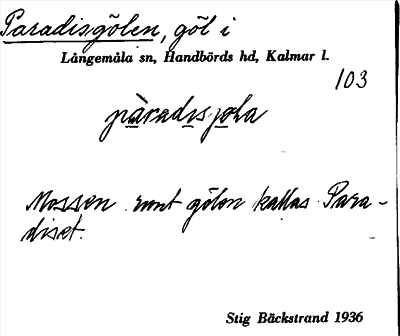 Paradisgölen, göl i
Långemåla sn, Handbörds hd, Kalmar l.
103
Mossen runt gölen kallas Para-
diset.
Stig Bäckstrand 1936